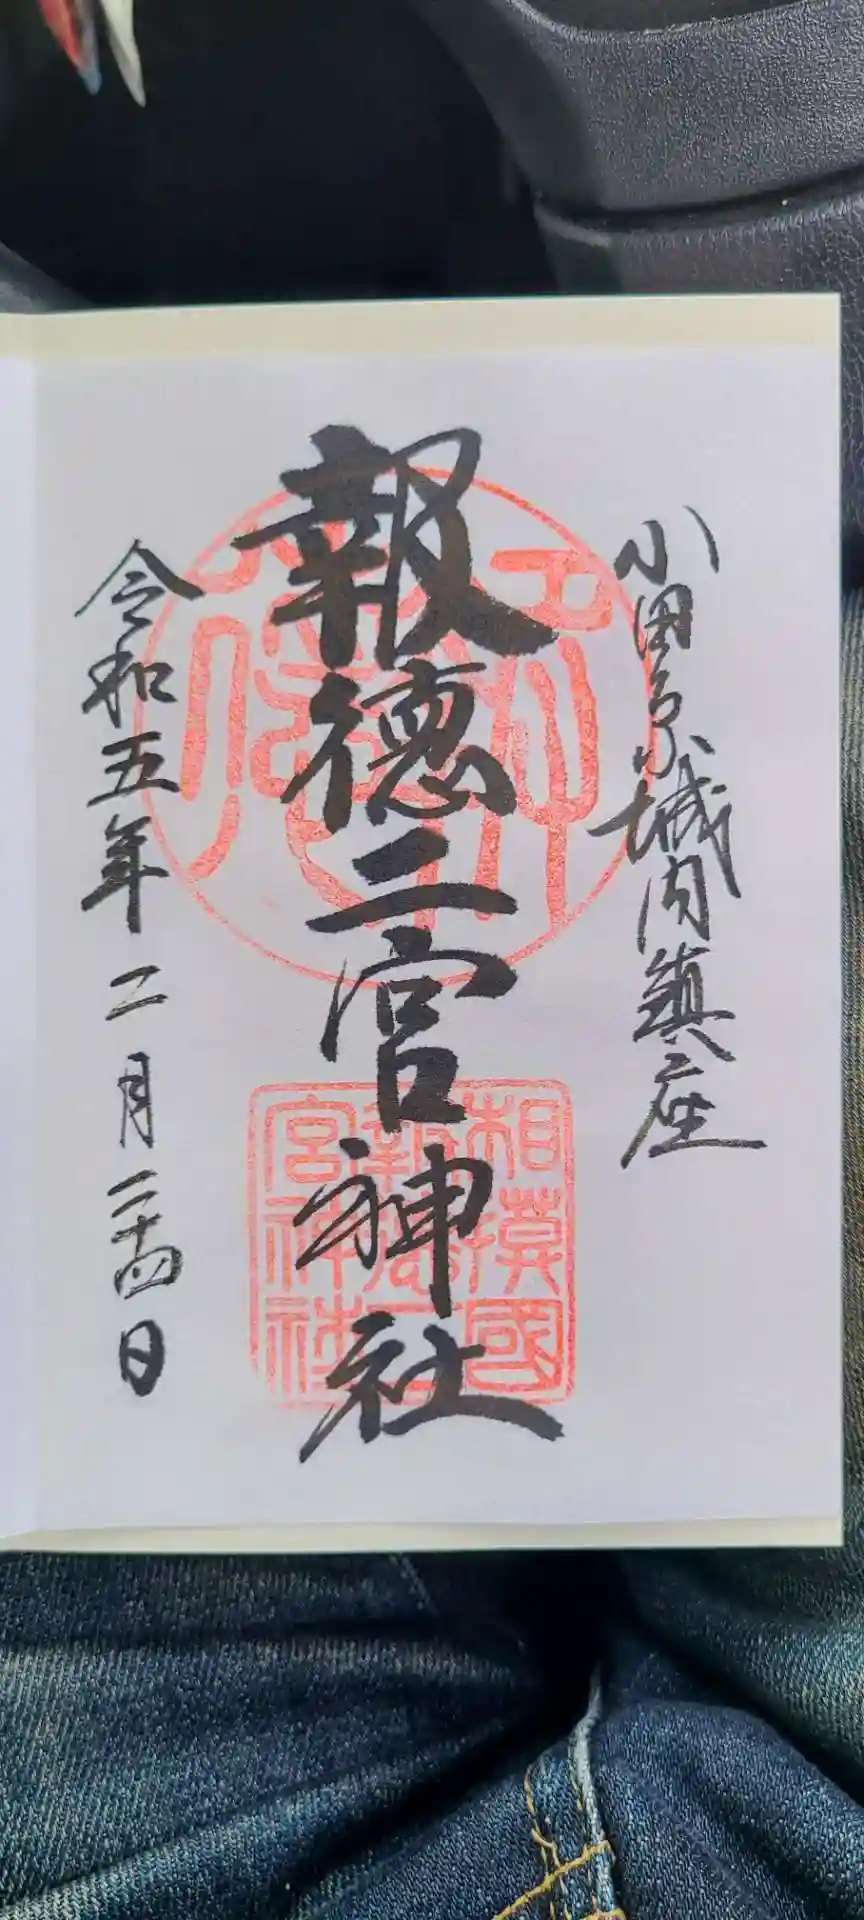 小田原城内鎮座
報徳二宮神社
令和五年二月二十四日
相模國
報徳二
宮神社